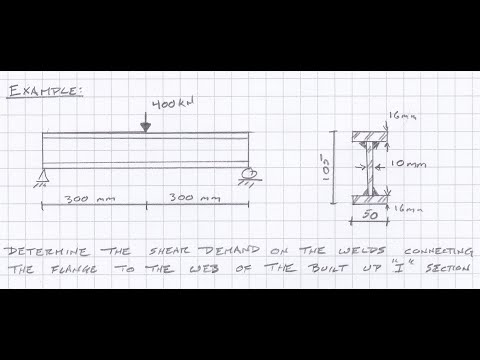 EXAMPLE:
400kN
300 mm
300 mm
16mm
105
10mm
50
16mm
DETERMINE THE SHEAR DEMAND ON THE WELDS CONNECTING
THE FLANGE TO THE WEB OF THE BUILT UP "I" SECTION